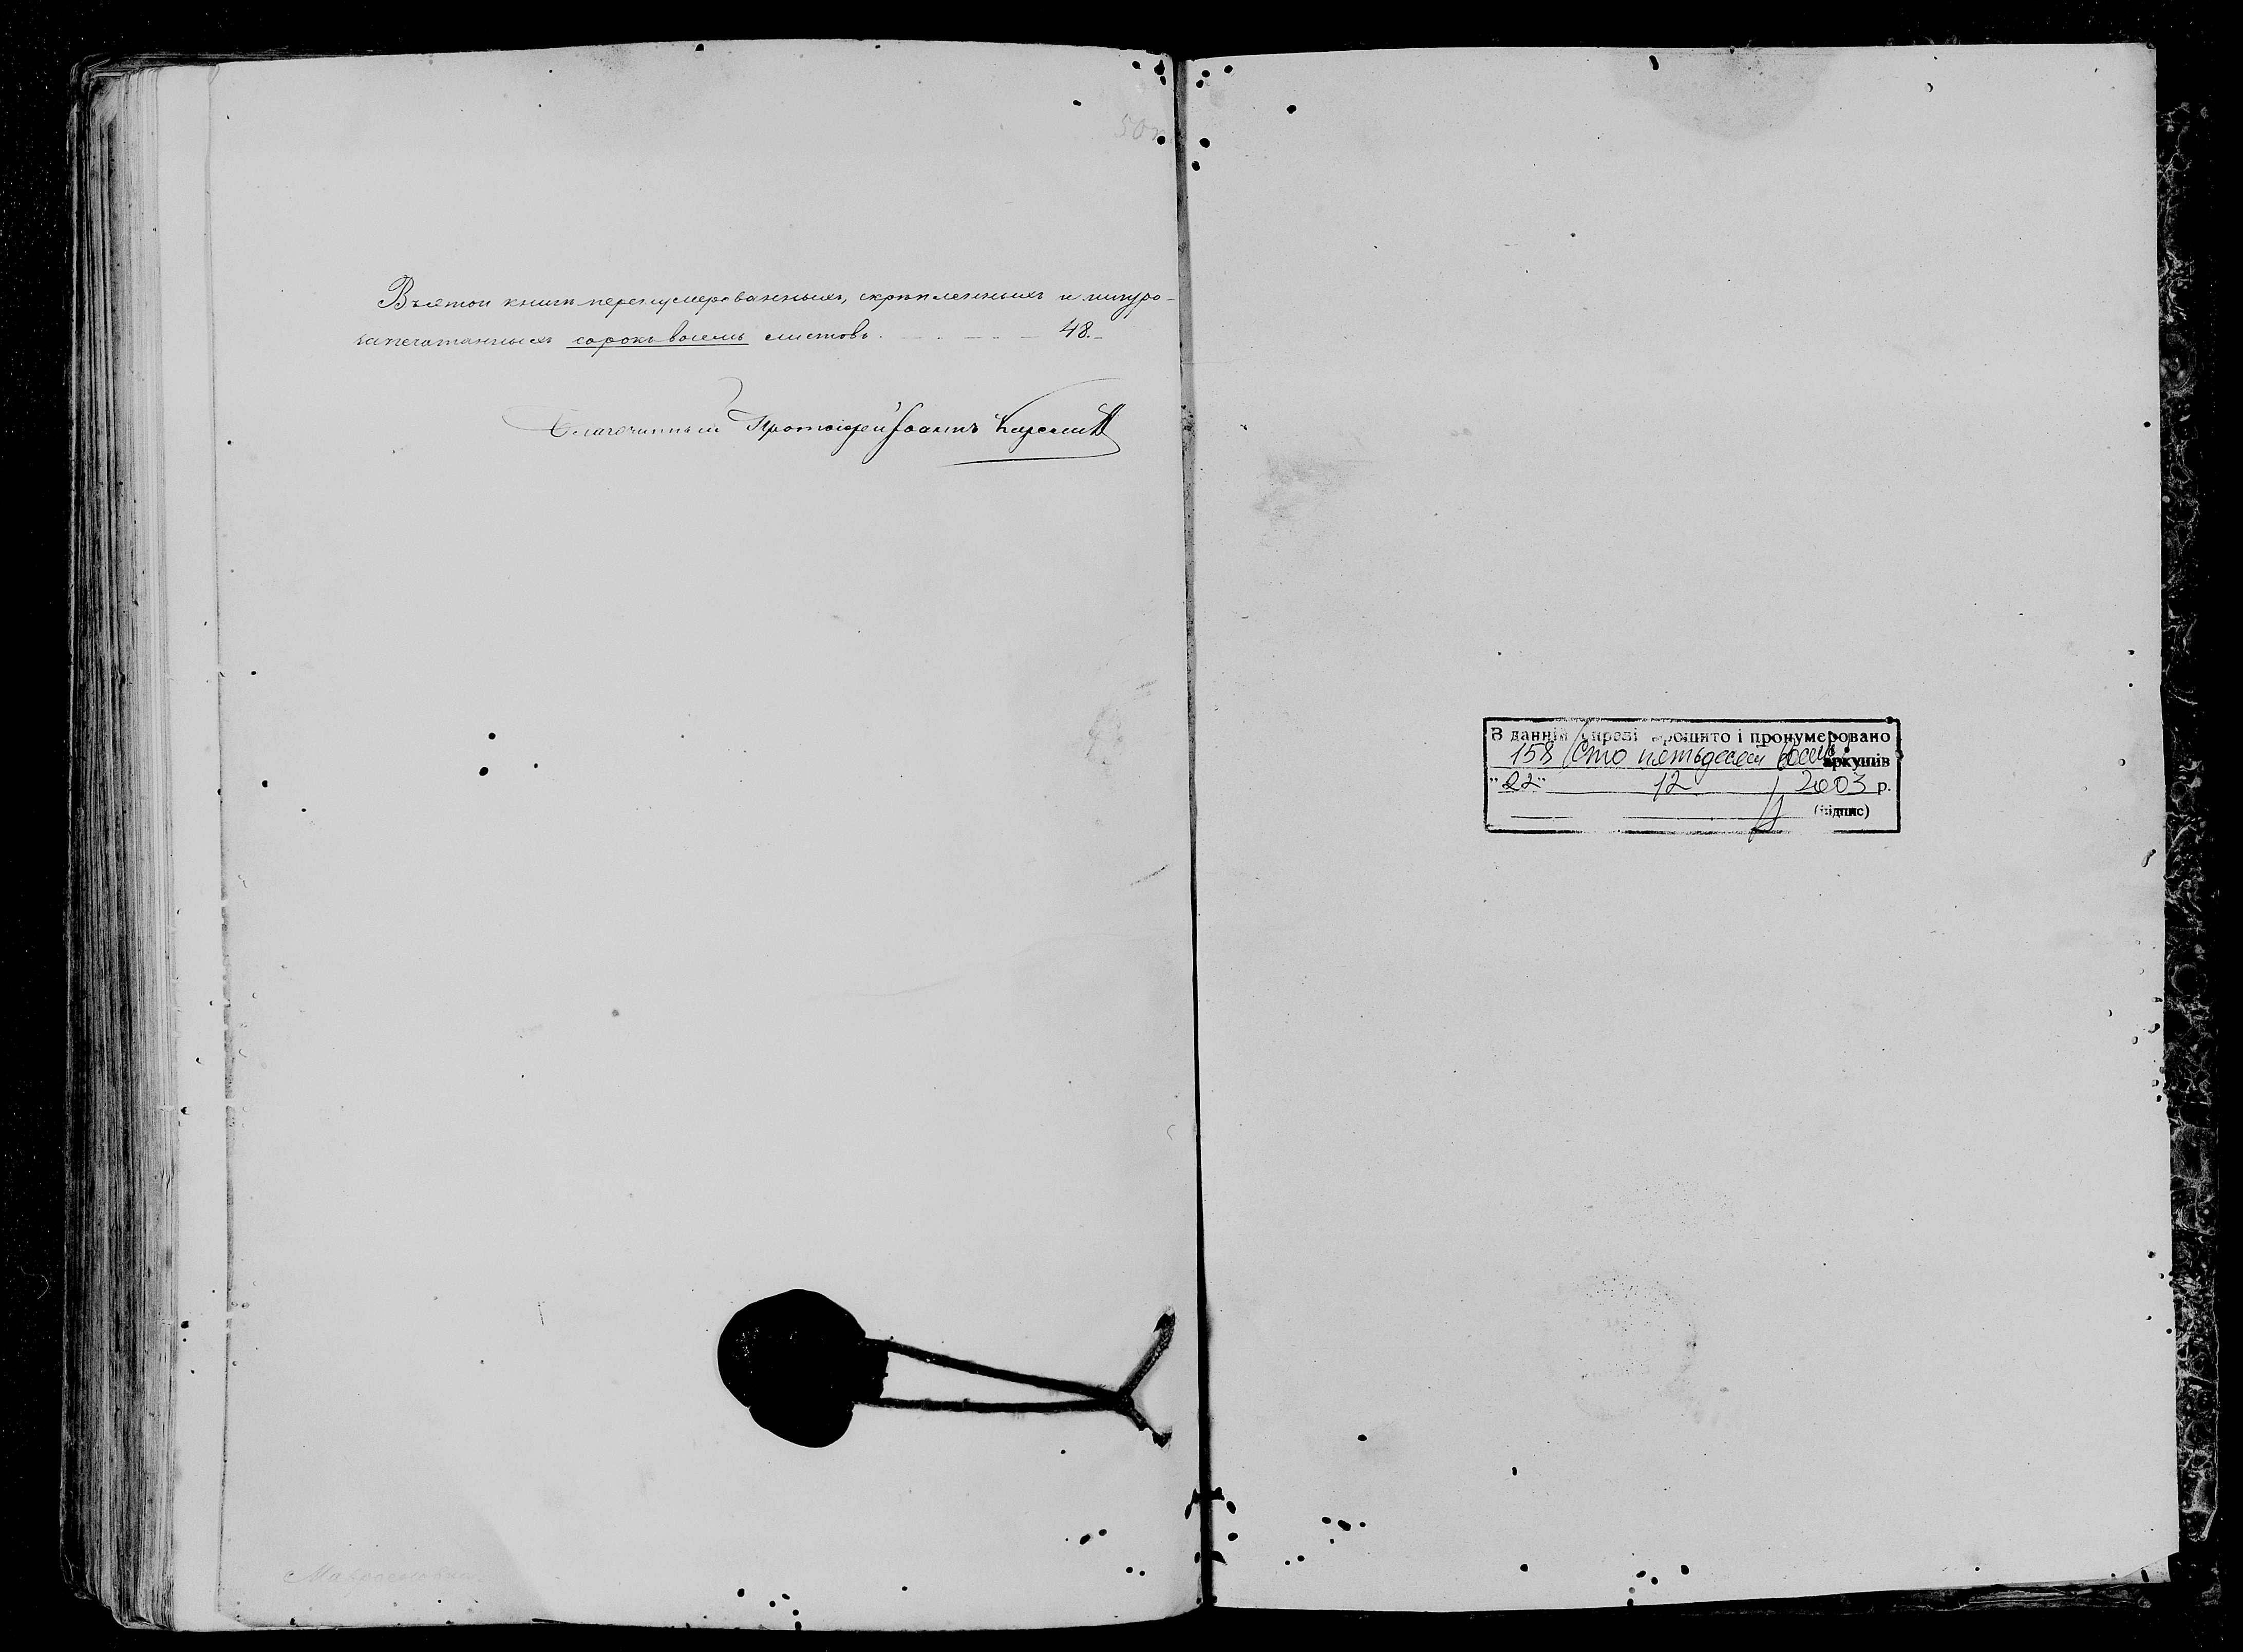 Въ этой книгѣ перенумерованныхъ, скрѣпленныхъ и шнуро-
запечатанныхъ сорокъ восемь листовъ. — . — . — . — 48. —
Благочинный Протоіерей Іоаннъ
В данній справі прошито і пронумеровано
158 /сто пятьдесят восем/ аркушів
"22" 12 2003 р.
(підпис)